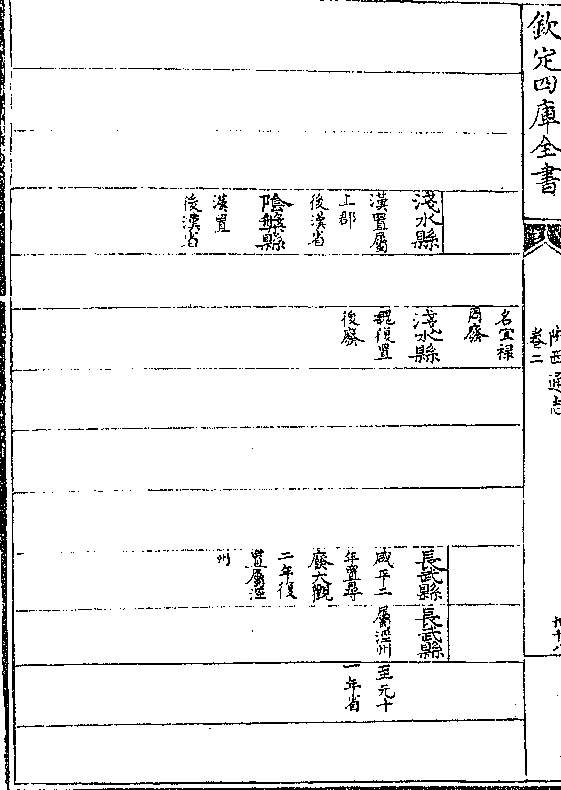 欽定四庫全書
陝西通志
卷二
淺水縣
漢置屬
上郡
後漢省
陰槃縣
漢置
後漢省
名宜祿
周廢
淺水縣
魏復置
後廢
長武縣
咸平二
年置尋
廢大觀
二年復
置屬涇
州
長武縣
屬涇州
至元十
一年省